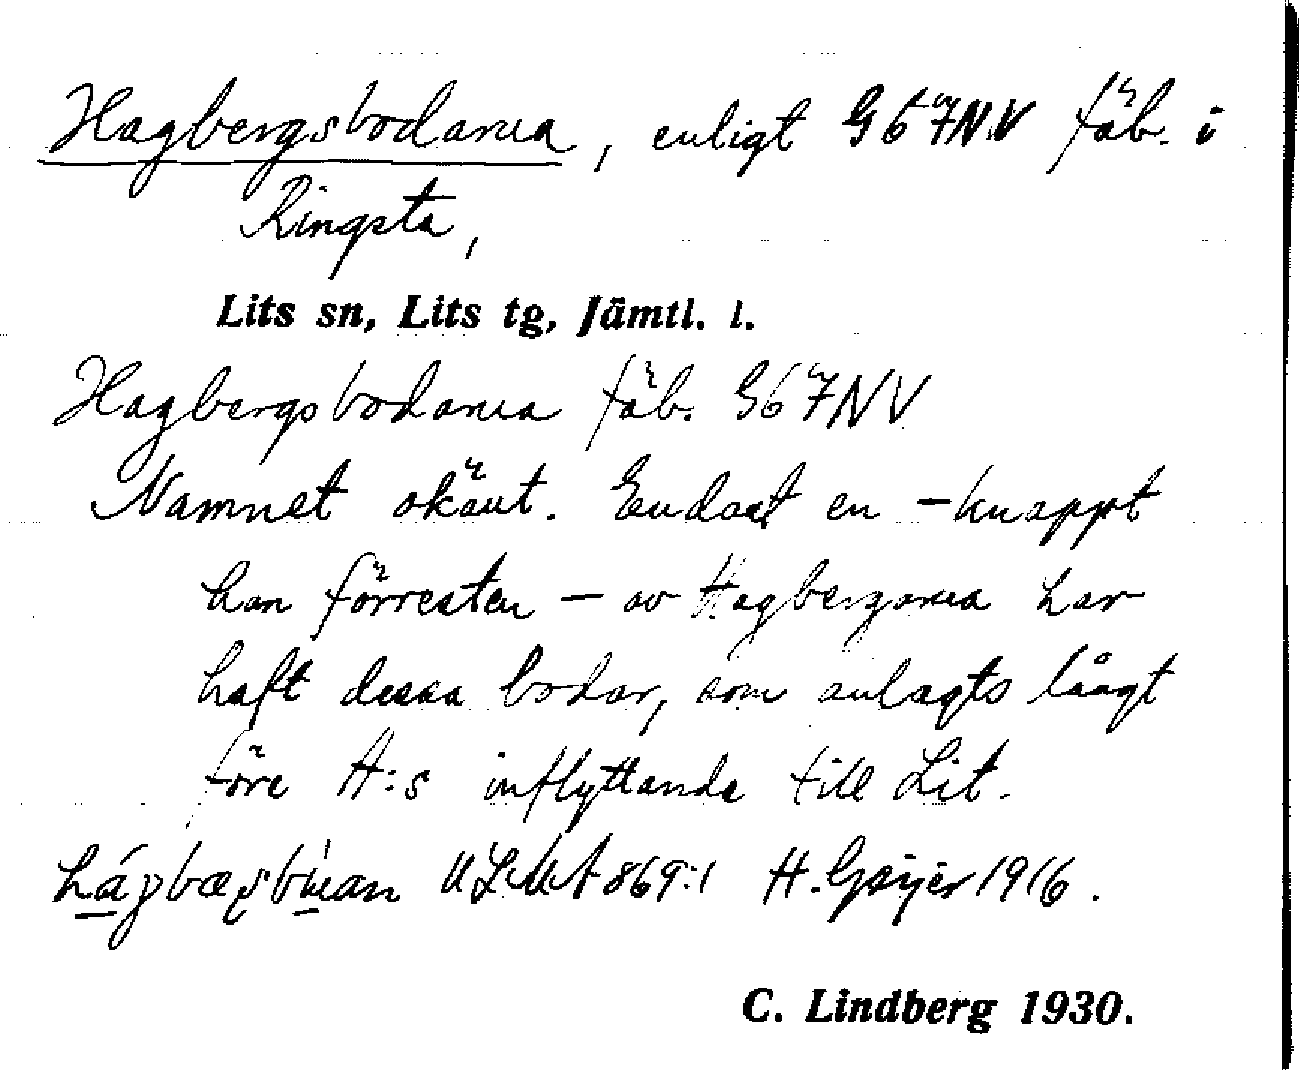 Hagbergsbodarna, enligt G67NV fäb. i
Ringsta,
Lits sn, Lits tg, Jämtl. l.
Hagbergsbodarna fäb. G67NV
Namnet okänt. Endast en - knappt
han förresten - av Hagbergarna har
haft dessa bodar, som anlagts långt
före H:s inflyttande till Lit.
ULMA 869:1 H. Geijer 1916.
C. Lindberg 1930.